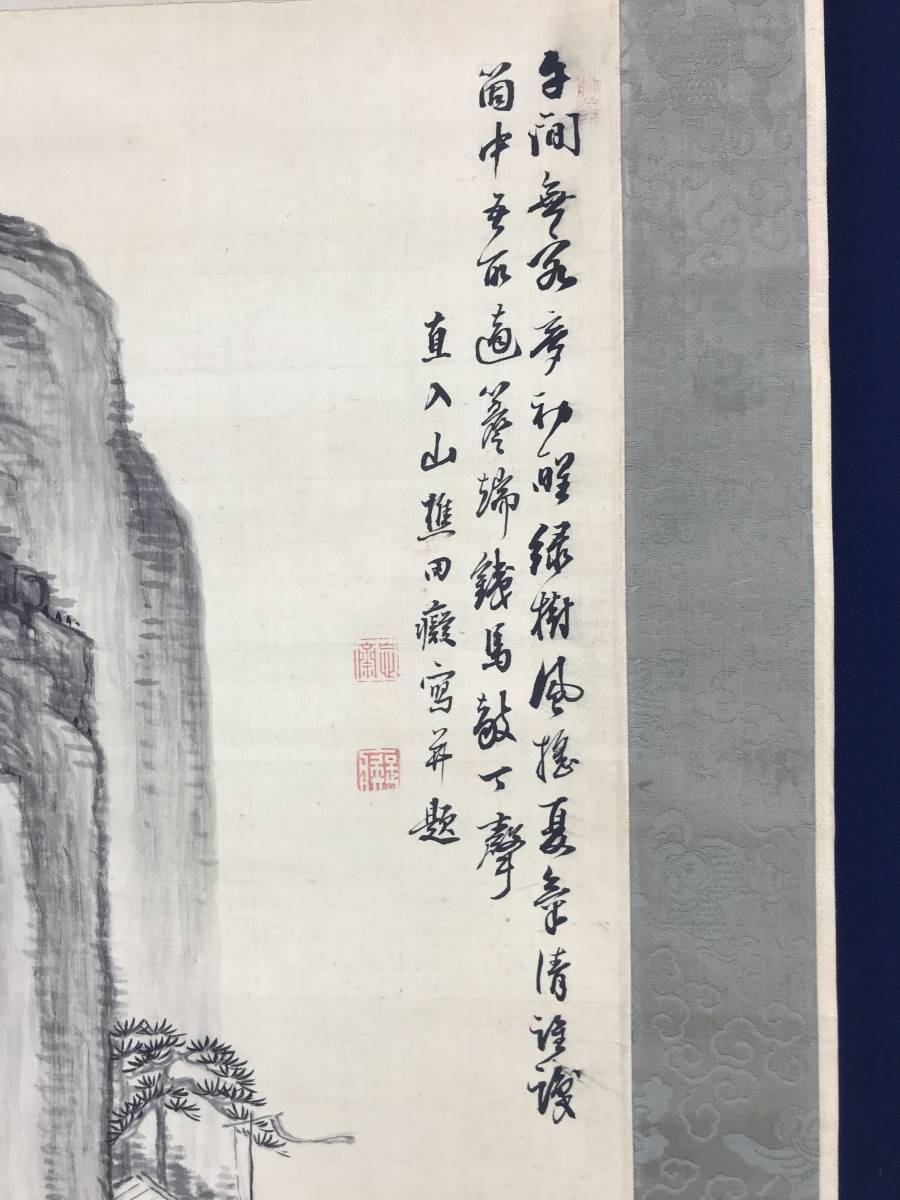 午間無客夢初醒緑樹風搖夏氣清誰識
箇中吾所適簷端鐵馬敲丁聲
直入山樵田癡寫并題